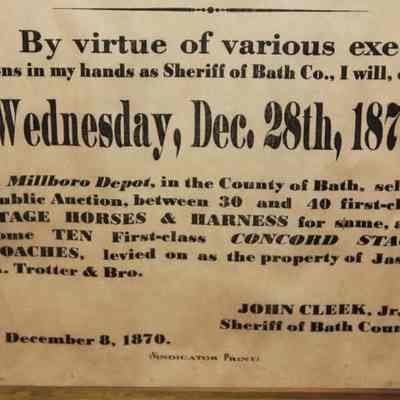 By virtue of various exe
ons in my hands as Sheriff of Bath Co., I will,
Wednesday, Dec. 28th, 187
Millboro Depot, in the County of Bath, sel
ublic Auction, between 30 and 40 first-cl
TAGE HORSES & HARNESS for same, a
ome TEN First-class CONCORD STAG
OACHES, levied on as the property of Jas
. Trotter & Bro.
JOHN CLEEK, Jr.
Sheriff of Bath Coun
December 8, 1870.
(SINDICATOR PRINT)